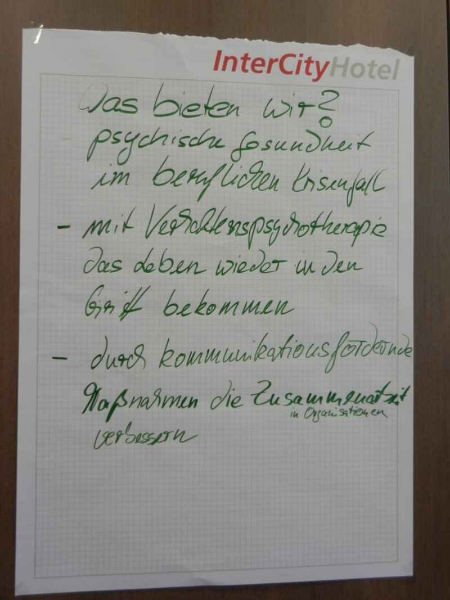 InterCityHotel
Was bieten wir?
psychische Gesundheit
im beruflichen Krisenfall
- mit Verhaltenspsychotherapie
das Leben wieder in den
Griff bekommen
- durch kommunikationsfördernde
Maßnahmen die Zusammenarbeit
in Organisationen
verbessern